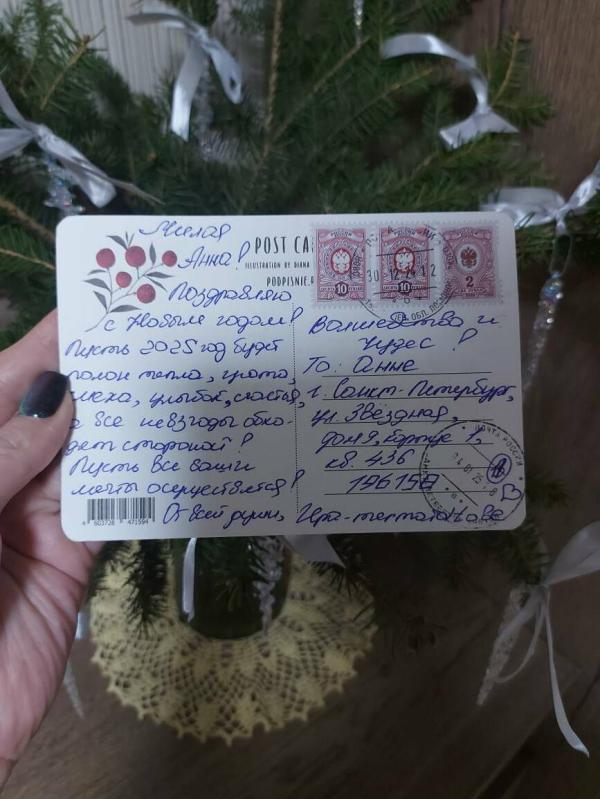 Милая
Анна!
Поздравляю
с Новым годом!
Пусть 2025 год будет
полон тепла, уюта,
смеха, улыбок, счастья,
а все невзгоды обхо-
дят стороной!
Пусть все ваши
мечты осуществятся!
От всей души,
POST CA
ILLUSTRATION BY DIANA
PODPISNIE.R
10
10
2
30 12 24 12
Волшебства и
чудес!
То: Анне
г. Санкт-Петербург,
ул. Звёздная,
дом 9, корпус 1,
кв. 436
196158
ПОЧТА РОССИИ
4 603728 471594